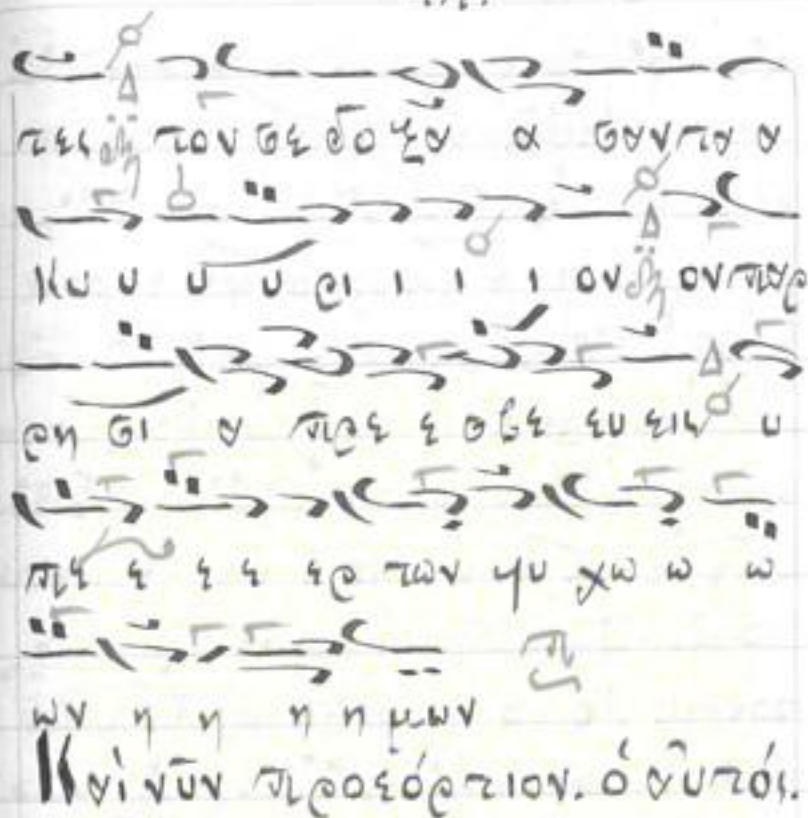 τες τον σε δο ξα α σαντα α
Κυ υ υ υ ρι ι ι ι ον ον παρ
ρη σι α πρε ε σβε ευ εις υ
πε ε ε ε ερ των ψυ χω ω ω
ων η η η η μων
Καὶ νῦν προεόρτιον. ὁ αὐτός.